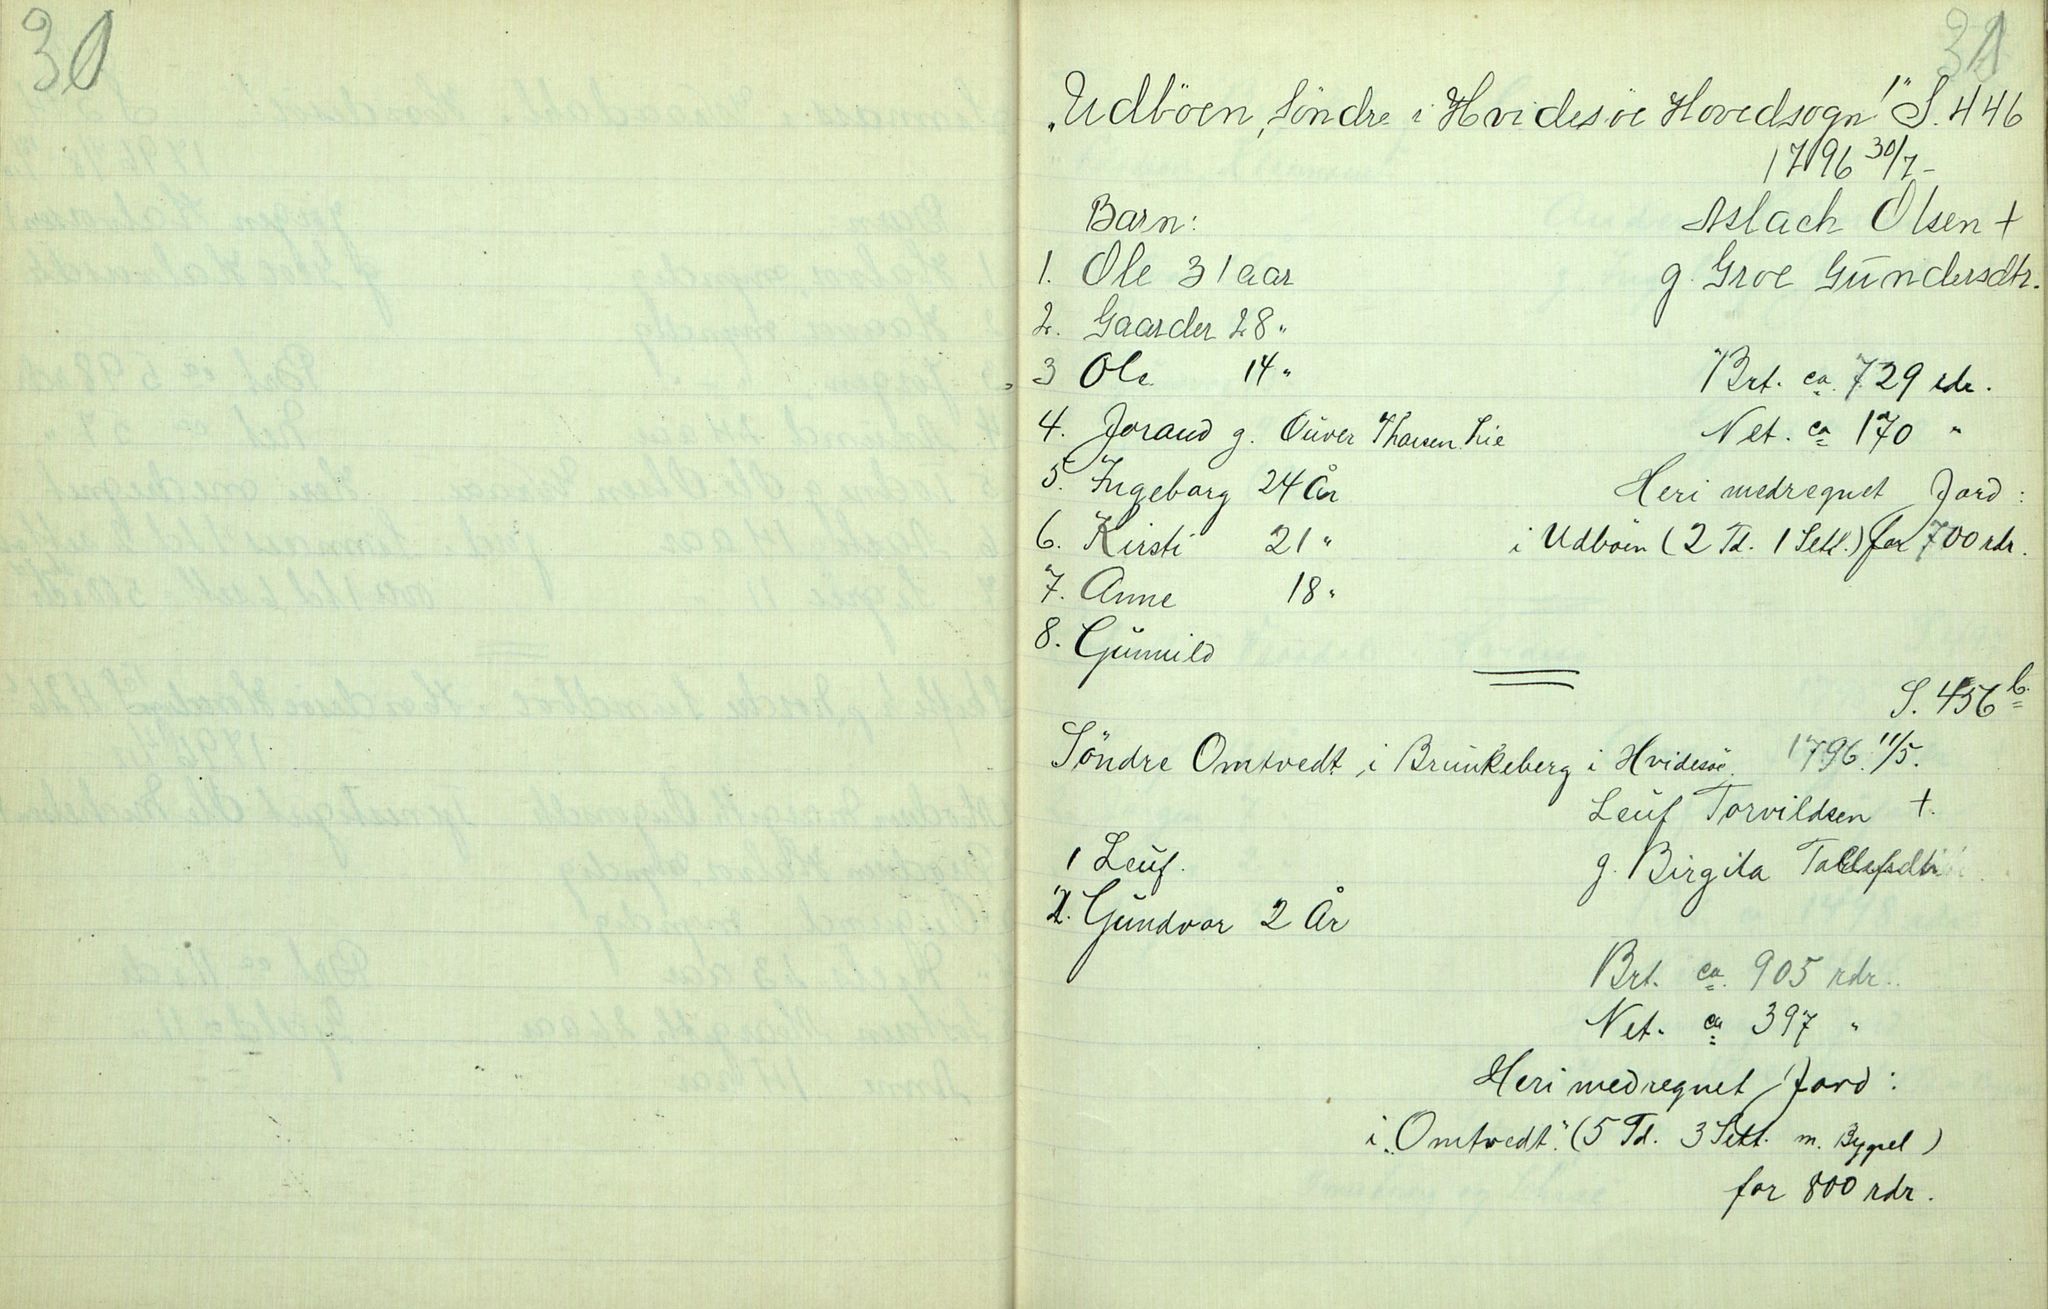 30
31
„Udböen, Söndre i Hvidesöe Hovedsogn!" S. 446
1796 30/7 -
Barn: Aslach Olsen +
1. Ole 31 aar g. Groe Gundersdtr.
2. Gaarder 28 "
3 Ole 14 " Brt. ca. 729 rdr.
4. Joraud g. Ouver Lie Net. ca 170 "
5. Ingeborg 24 År Heri medregnet Jord:
6. Kirsti 21 " i Udböen (2 Td. 1 Sett.) for 700 rdr.
7. Anne 18 "
8. Gunnild
S. 456 b.
Söndre Omtvedt i Brunkeberg i Hvidesöe. 1796. 11/5.
Leuf Torvildsen +.
1 Leuf. g. Birgita
2. Gundvor 2 År
Brt. ca. 905 rdr.
Net. ca 397 "
Heri medregnet Jord:
i „Omtvedt" (5 Td. 3 Sett. m. Bygsel)
for 800 rdr.